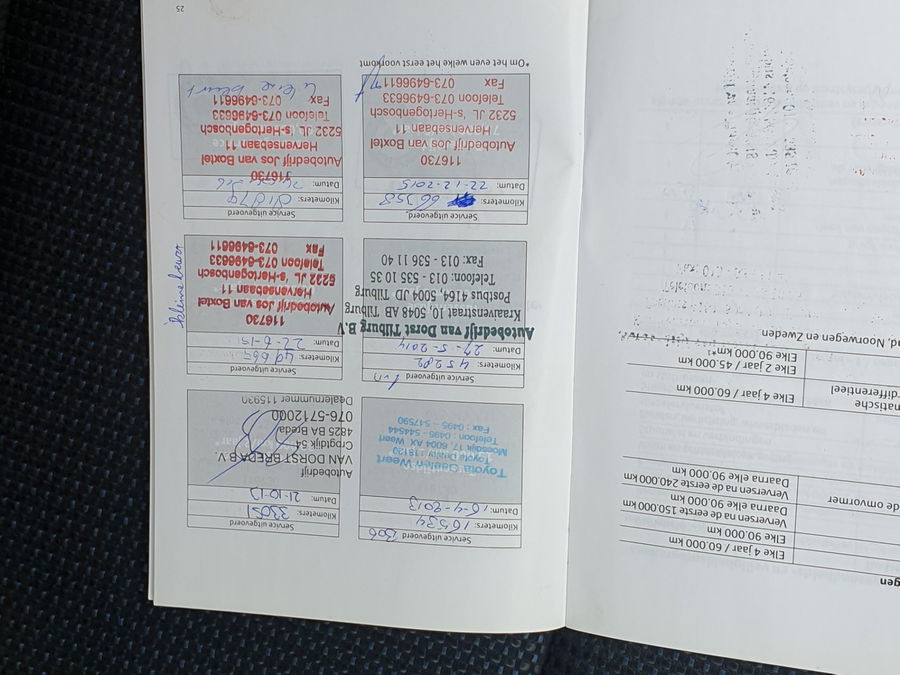 gen
Elke 4 jaar / 60.000 km
Elke 90.000 km
Verversen na de eerste 150.000 km
Daarna elke 90.000 km
de omvormer
Verversen na de eerste 240.000 km
Daarna elke 90.000 km
matische
Elke 4 jaar / 60.000 km
rdifferentieel
Elke 2 jaar / 45.000 km
Elke 90.000 km**
nd, Noorwegen en Zweden.
Service uitgevoerd
Kilometers: 16534
Datum: 16-4-2013
Toyota Gaalen Weert
Toyota Dealer 118120
Moesdijk 17, 6004 AX Weert
Telefoon : 0495 - 544544
Fax : 0495 - 547590
Service uitgevoerd
Kilometers: 33051
Datum: 21-10-13
Autobedrijf
VAN DORST BREDA B.V.
Crogtdijk 54
4825 BA Breda
076-5712000
Dealernummer 115930
Service uitgevoerd
Kilometers: 45282
Datum: 27-5-2014
Autobedrijf van Dorst Tilburg B.V.
Kraaivenstraat 10, 5048 AB Tilburg
Postbus 4164, 5004 JD Tilburg
Telefoon: 013 - 535 10 35
Fax: 013 - 536 11 40
Service uitgevoerd
Kilometers:
Datum: 22-6-15
116730
Autobedrijf Jos van Boxtel
Hervensebaan 11
5232 JL 's-Hertogenbosch
Telefoon 073-6496633
Fax 073-6496611
kleine beurt
Service uitgevoerd
Kilometers: 66358
Datum: 22-12-2015
116730
Autobedrijf Jos van Boxtel
Hervensebaan 11
5232 JL 's-Hertogenbosch
Telefoon 073-6496633
Fax 073-6496611
Service uitgevoerd
Kilometers:
Datum:
116730
Autobedrijf Jos van Boxtel
Hervensebaan 11
5232 JL 's-Hertogenbosch
Telefoon 073-6496633
Fax 073-6496611
kleine beurt
*Om het even welke het eerst voorkomt
25